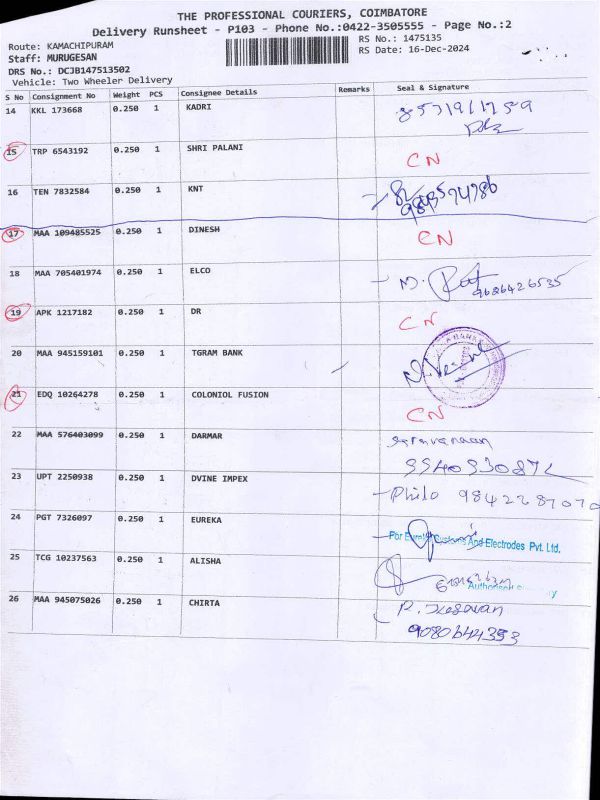 THE PROFESSIONAL COURIERS, COIMBATORE
Delivery Runsheet - P103 - Phone No.:0422-3505555 - Page No.:2
Route: KAMACHIPURAM
RS No.: 1475135
Staff: MURUGESAN
RS Date: 16-Dec-2024
DRS No.: DCJB147513502
Vehicle: Two Wheeler Delivery
S No Consignment No Weight PCS Consignee Details Remarks Seal & Signature
14 KKL 173668 0.250 1 KADRI
15 TRP 6543192 0.250 1 SHRI PALANI CN
16 TEN 7832584 0.250 1 KNT
17 MAA 109485525 0.250 1 DINESH CN
18 MAA 705401974 0.250 1 ELCO 9626426535
19 APK 1217182 0.250 1 DR CN
20 MAA 945159101 0.250 1 TGRAM BANK
21 EDQ 10264278 0.250 1 COLONIOL FUSION CN
22 MAA 576403099 0.250 1 DARMAR Saravanaan
23 UPT 2250938 0.250 1 DVINE IMPEX Philo
24 PGT 7326097 0.250 1 EUREKA For And Electrodes Pvt. Ltd.
25 TCG 10237563 0.250 1 ALISHA
26 MAA 945075026 0.250 1 CHIRTA
9080644353